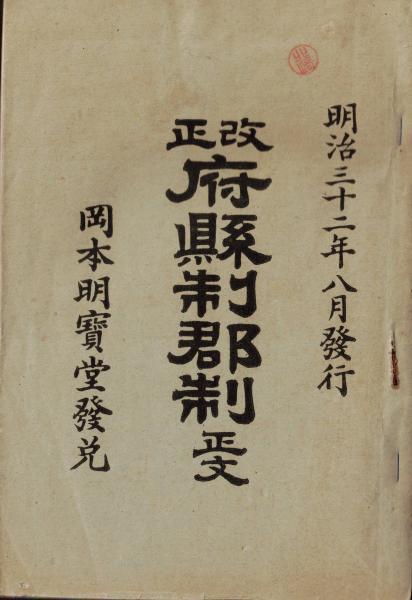 明治三十二年八月發行
改正
府縣制郡制
正文
岡本明寶堂發兌